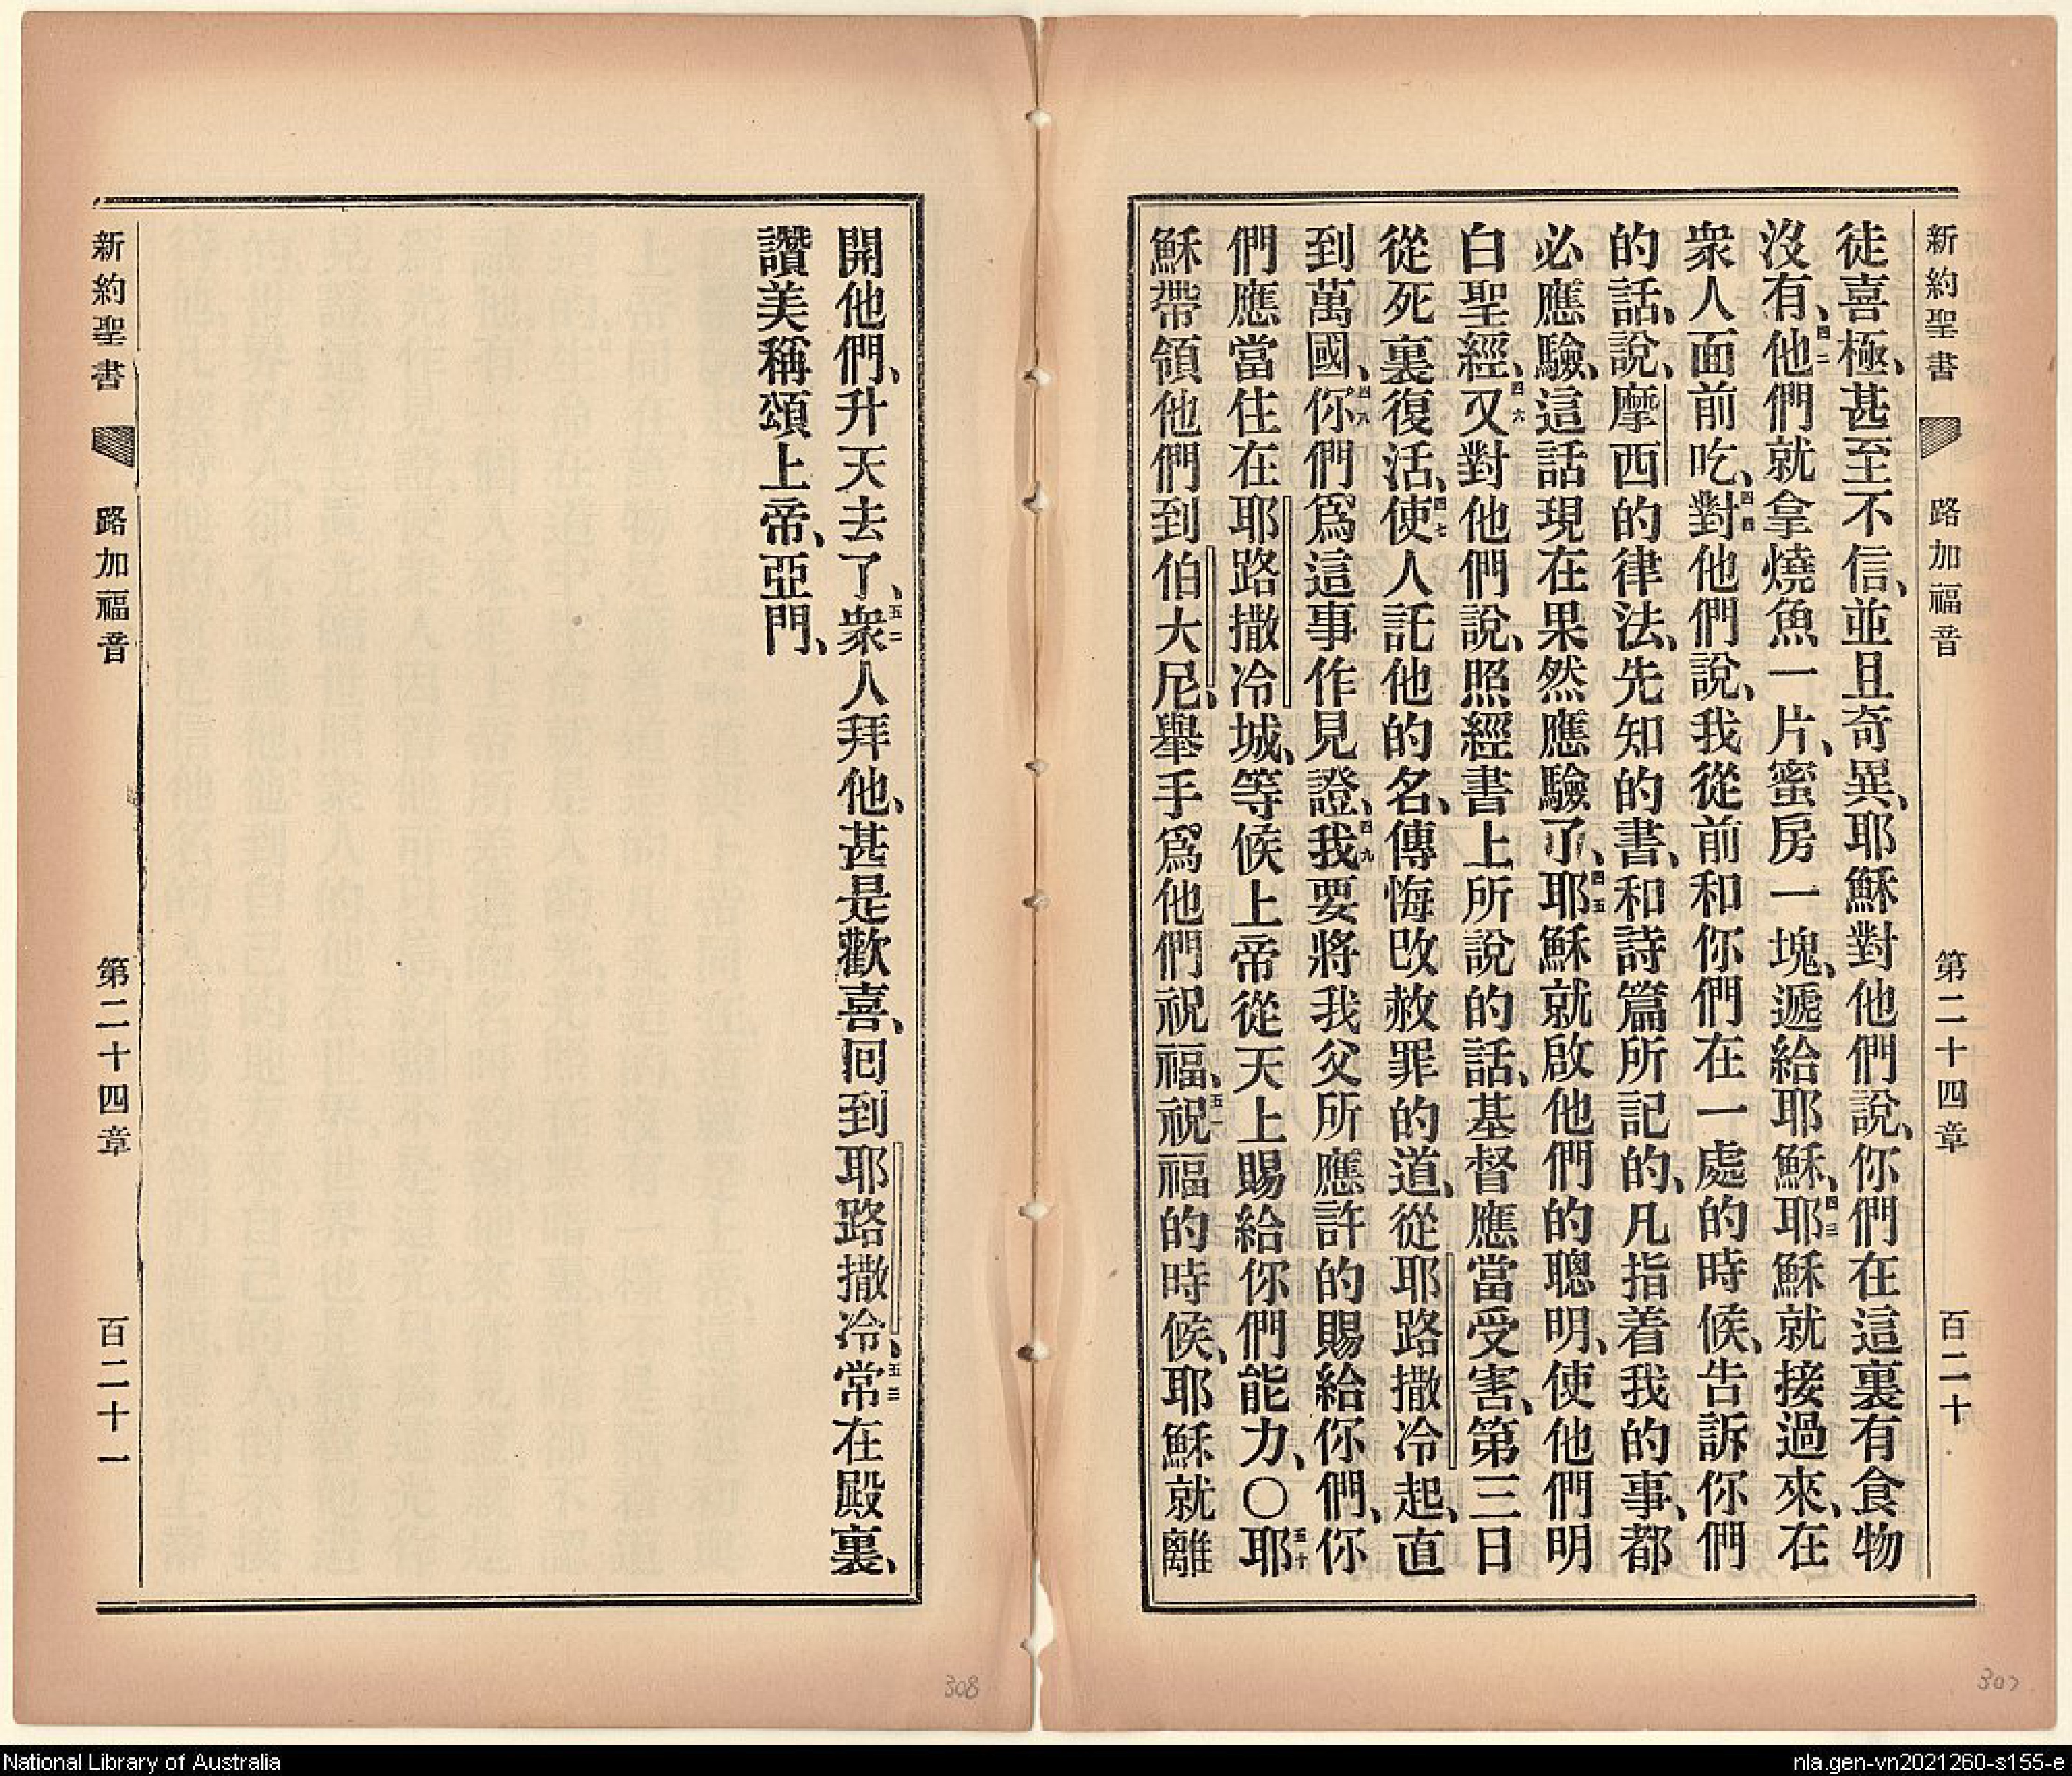 新約聖書 路加福音 第二十四章 百二十
徒喜極、甚至不信、並且奇異、耶穌對他們說、你們在這裏有食物
沒有、四二他們就拿燒魚一片、蜜房一塊、遞給耶穌、四三耶穌就接過來、在
衆人面前吃、四四對他們說、我從前和你們在一處的時候、告訴你們
的話、說、摩西的律法、先知的書、和詩篇所記的、凡指着我的事、都
必應驗、這話現在果然應驗了、四五耶穌就啟他們的聰明、使他們明
白聖經、四六又對他們說、照經書上所說的話、基督應當受害、第三日
從死裏復活、四七使人託他的名、傳悔改赦罪的道、從耶路撒冷起、直
到萬國、四八你們爲這事作見證、四九我要將我父所應許的賜給你們、你
們應當住在耶路撒冷城、等候上帝從天上賜給你們能力、○五十耶
穌帶領他們到伯大尼、舉手爲他們祝福、五一祝福的時候、耶穌就離
開他們、升天去了、五二衆人拜他、甚是歡喜、囘到耶路撒冷、五三常在殿裏、
讚美稱頌上帝、亞門、
新約聖書 路加福音 第二十四章 百二十一
307
308
National Library of Australia
nla.gen-vn2021260-s155-e